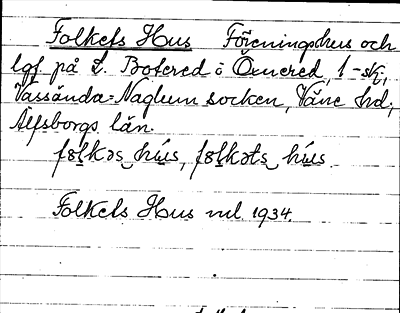 Folkets Hus Föreningshus och
lgf på L. Botered i Öxnered, 1-sk,
Vassända-Naglum socken, Väne hd,
Älfsborgs län.
fɵlkəs hús, fɵlkəts hús
Folkets Hus ml 1934.